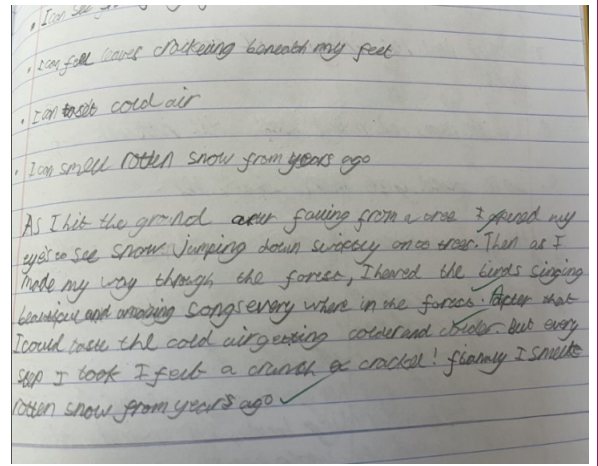 • I can see
• I can feel leaves crackeling beneath my feet
• I can taste cold air
• I can smell rotten snow from years ago
As I hit the ground after falling from a tree I opened my
eye's to see snow jumping down swiftly onto trees. Then as I
made my way through the forest, I heared the birds singing
beautiful and amazing songs every where in the forest. After that
I could taste the cold air getting colder and colder. But every
step I took I felt a crunch a crackel! finally I smelt
rotten snow from years ago